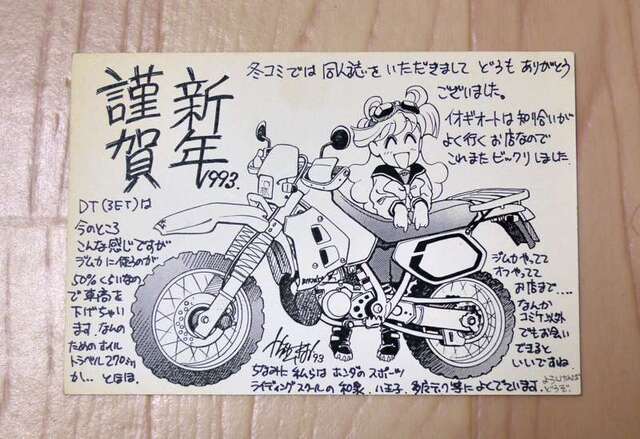 謹賀
新年
1993.
冬コミでは同人誌をいただきまして どうも ありがとう
ございました。
イオギオートは知り合いが
よく行くお店なので
これまたビックリしました
DT(3ET)は
今のところ
こんな感じですが
ジムカに使うのが
50%くらいなの
で車高を
下げちゃい
ます。なんの
ためのホイル
トラベル270mm
か… とほほ.
ジムカやってて
オフやってて
お店まで....
なんか
コミケ以外
でもお会い
できると
いいですね
'93
ちなみに私らはホンダのスポーツ
ライディングスクールの和泉、八王子、多度テク等によくでています。
どうぞ.